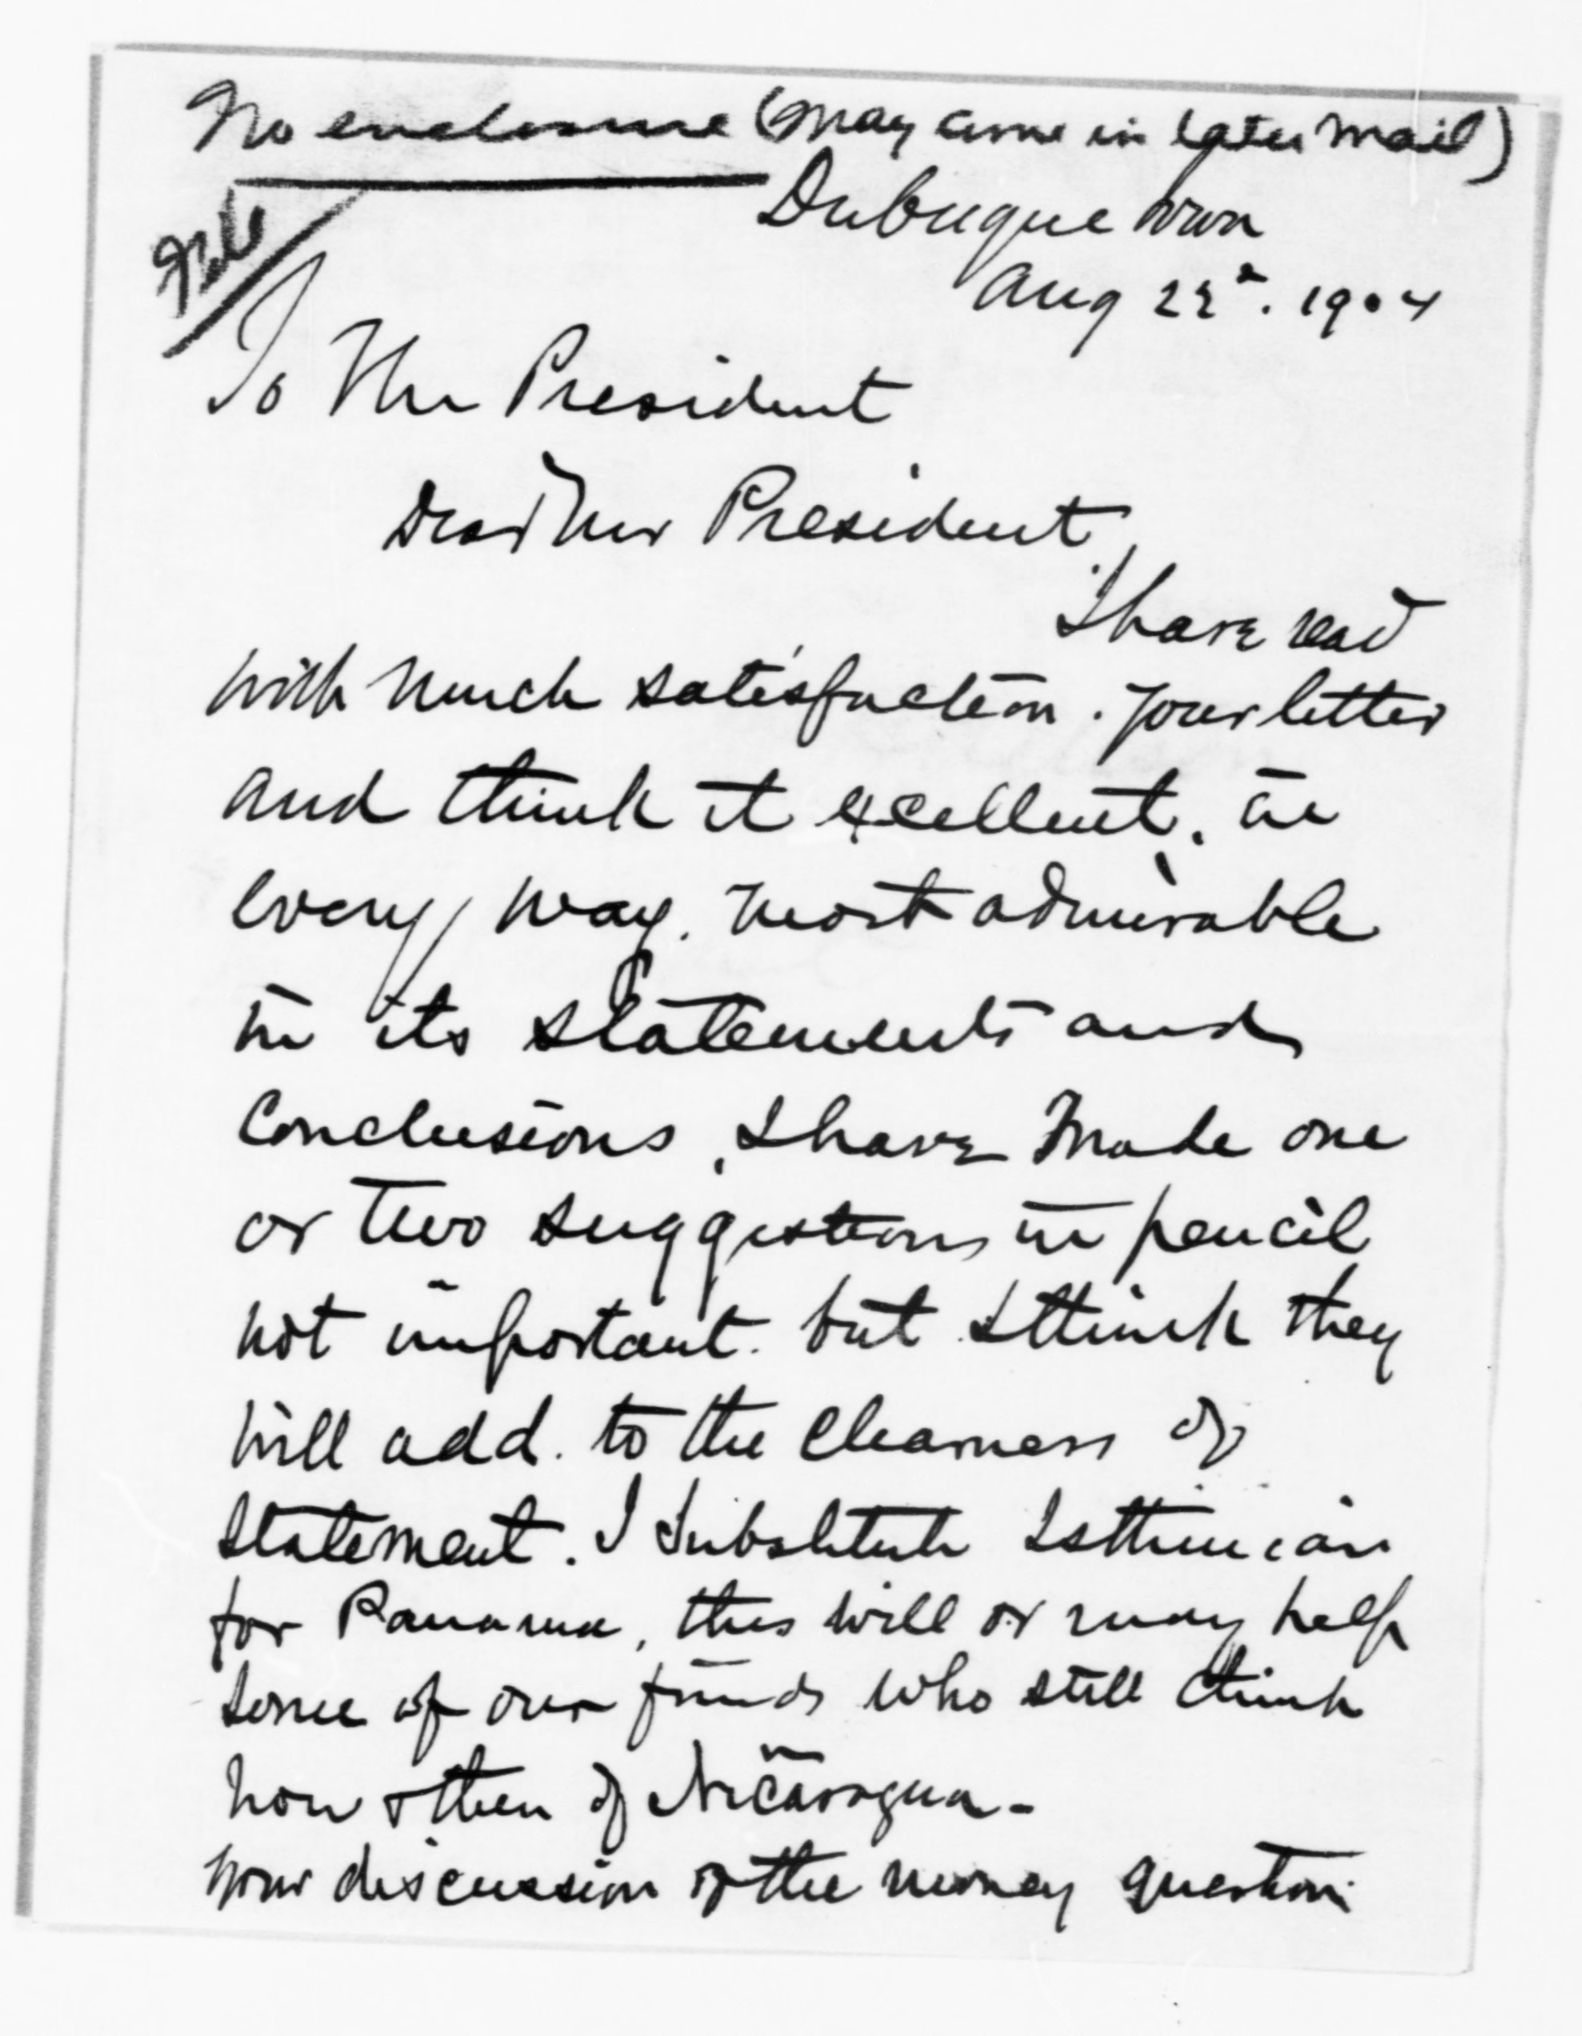 No enclosure (may come in later mail)
File
Dubuque Iowa
Aug 22d. 1904
To The President
Dear Mr President,
I have read
with much satisfaction. your letter
and think it excellent, in
every way. most admirable
in its statements and
Conclusions, I have made one
or two suggestions in pencil
not important. but I think they
will add. to the clearness of
statement. I substitute Isthmian
for Panama, this will or may help
some of our friends who still think
now & then of Nicaragua -
your discussion of the money question